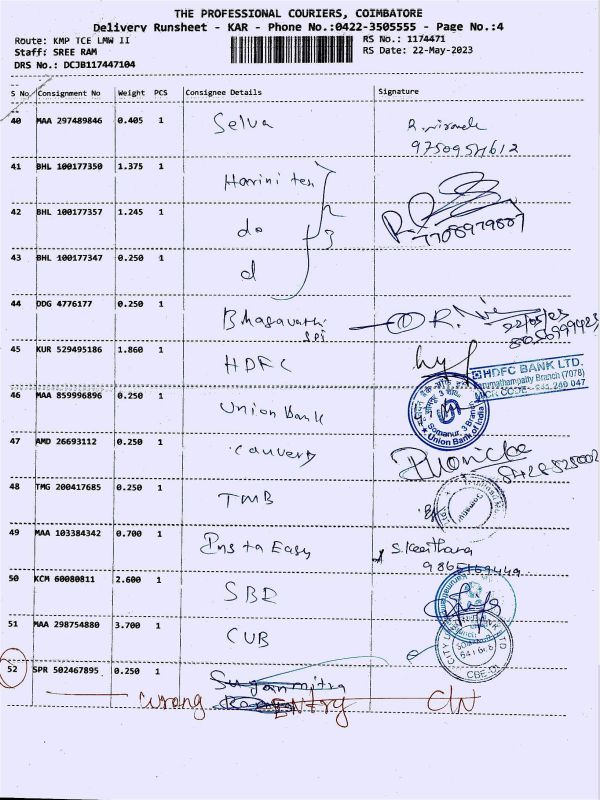 THE PROFESSIONAL COURIERS, COIMBATORE
Delivery Runsheet - KAR - Phone No.:0422-3505555 - Page No.:4
Route: KMP TCE LMW II
RS No.: 1174471
Staff: SREE RAM
RS Date: 22-May-2023
DRS No.: DCJB117447104
S No Consignment No Weight PCS Consignee Details Signature
40 MAA 297489846 0.405 1 Selva
9750954612
41 BHL 100177350 1.375 1 Harini tex
42 BHL 100177357 1.245 1 do
7708979887
43 BHL 100177347 0.250 1 d
3
44 DDG 4776177 0.250 1 Bhagavathi
22/05/23
45 KUR 529495186 1.860 1 HDFC
HDFC BANK LTD.
Karumathampatty Branch (7078)
MICR CODE - 641 240 047
46 MAA 859996896 0.250 1 Union Bank
Somanur, 3 Branch
Union Bank of India
47 AMD 26693112 0.250 1 Cauvery
48 TMG 200417685 0.250 1 TMB
49 MAA 103384342 0.700 1 Insta Easy S. Keerthana
50 KCM 60080811 2.600 1 SBI
51 MAA 298754880 3.700 1 CUB
52 SPR 502467895 0.250 1 Suganmitra
Wrong ENTRY C/N